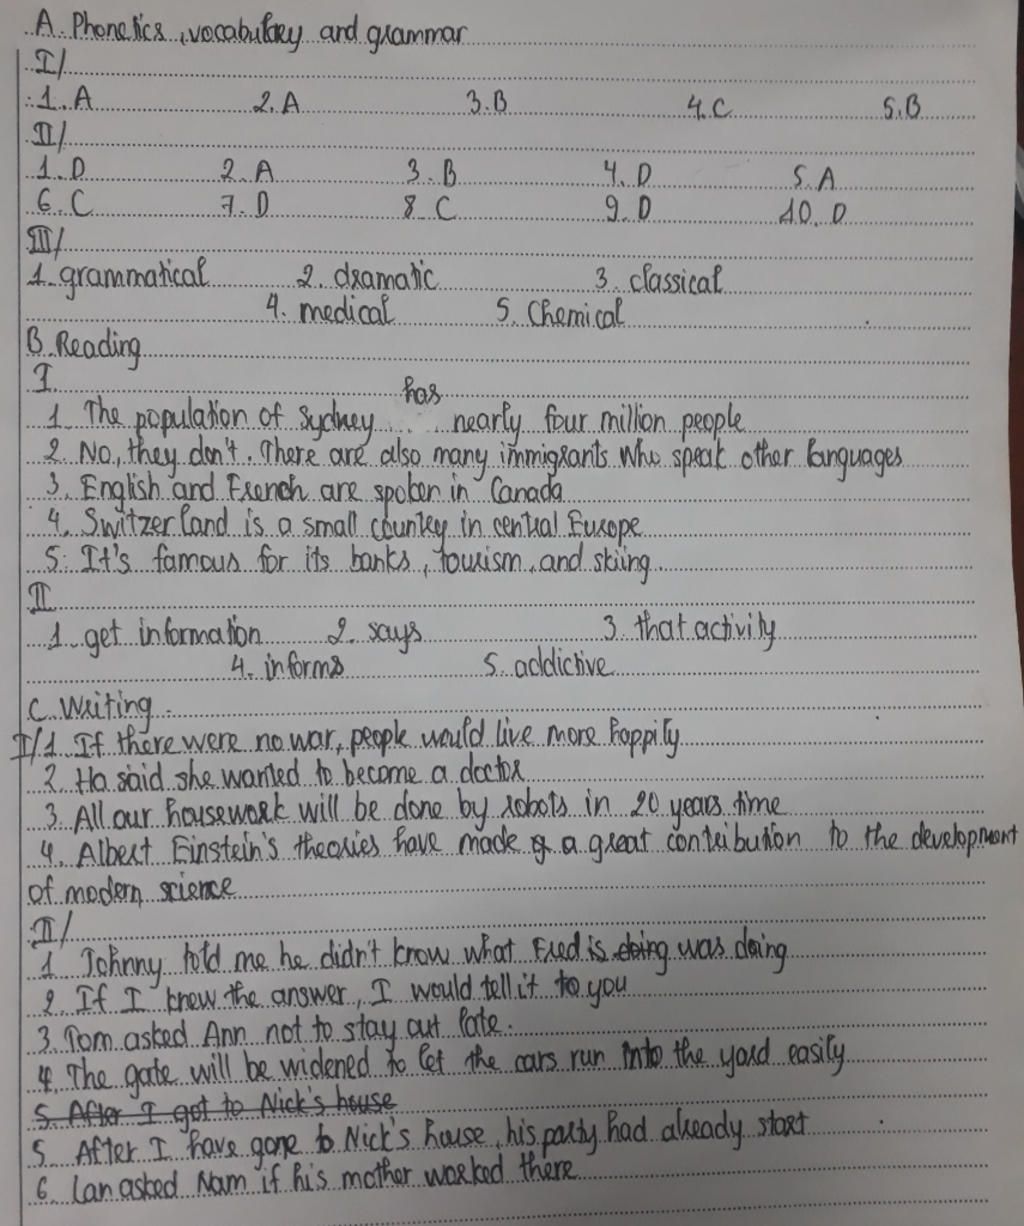 A. Phonetics, vocabulary and grammar
I/
1. A 2. A 3. B 4. C 5. B
II/
1. D 2. A 3. B 4. D 5. A
6. C 7. D 8. C 9. D 10. D
III/
1. grammatical 2. dramatic 3. classical
4. medical 5. Chemical
B. Reading
I.
has
1. The population of Sydney nearly four million people
2. No, they don't. There are also many immigrants who speak other languages
3. English and French are spoken in Canada
4. Switzerland is a small country in central Europe
5. It's famous for its banks, tourism, and skiing
II
1. get information 2. says 3. that activity
4. informs 5. addictive
C. Writing
I/1. If there were no war, people would live more happily
2. Ha said she wanted to become a doctor
3. All our housework will be done by robots in 20 years time
4. Albert Einstein's theories have made a great contribution to the development
of modern science
II/
1. Johnny told me he didn't know what Fred is doing was doing
2. If I knew the answer, I would tell it to you
3. Tom asked Ann not to stay out late.
4. The gate will be widened to let the cars run into the yard easily
5. After I got to Nick's house
5. After I have gone to Nick's house, his party had already start
6. Lan asked Nam if his mother worked there